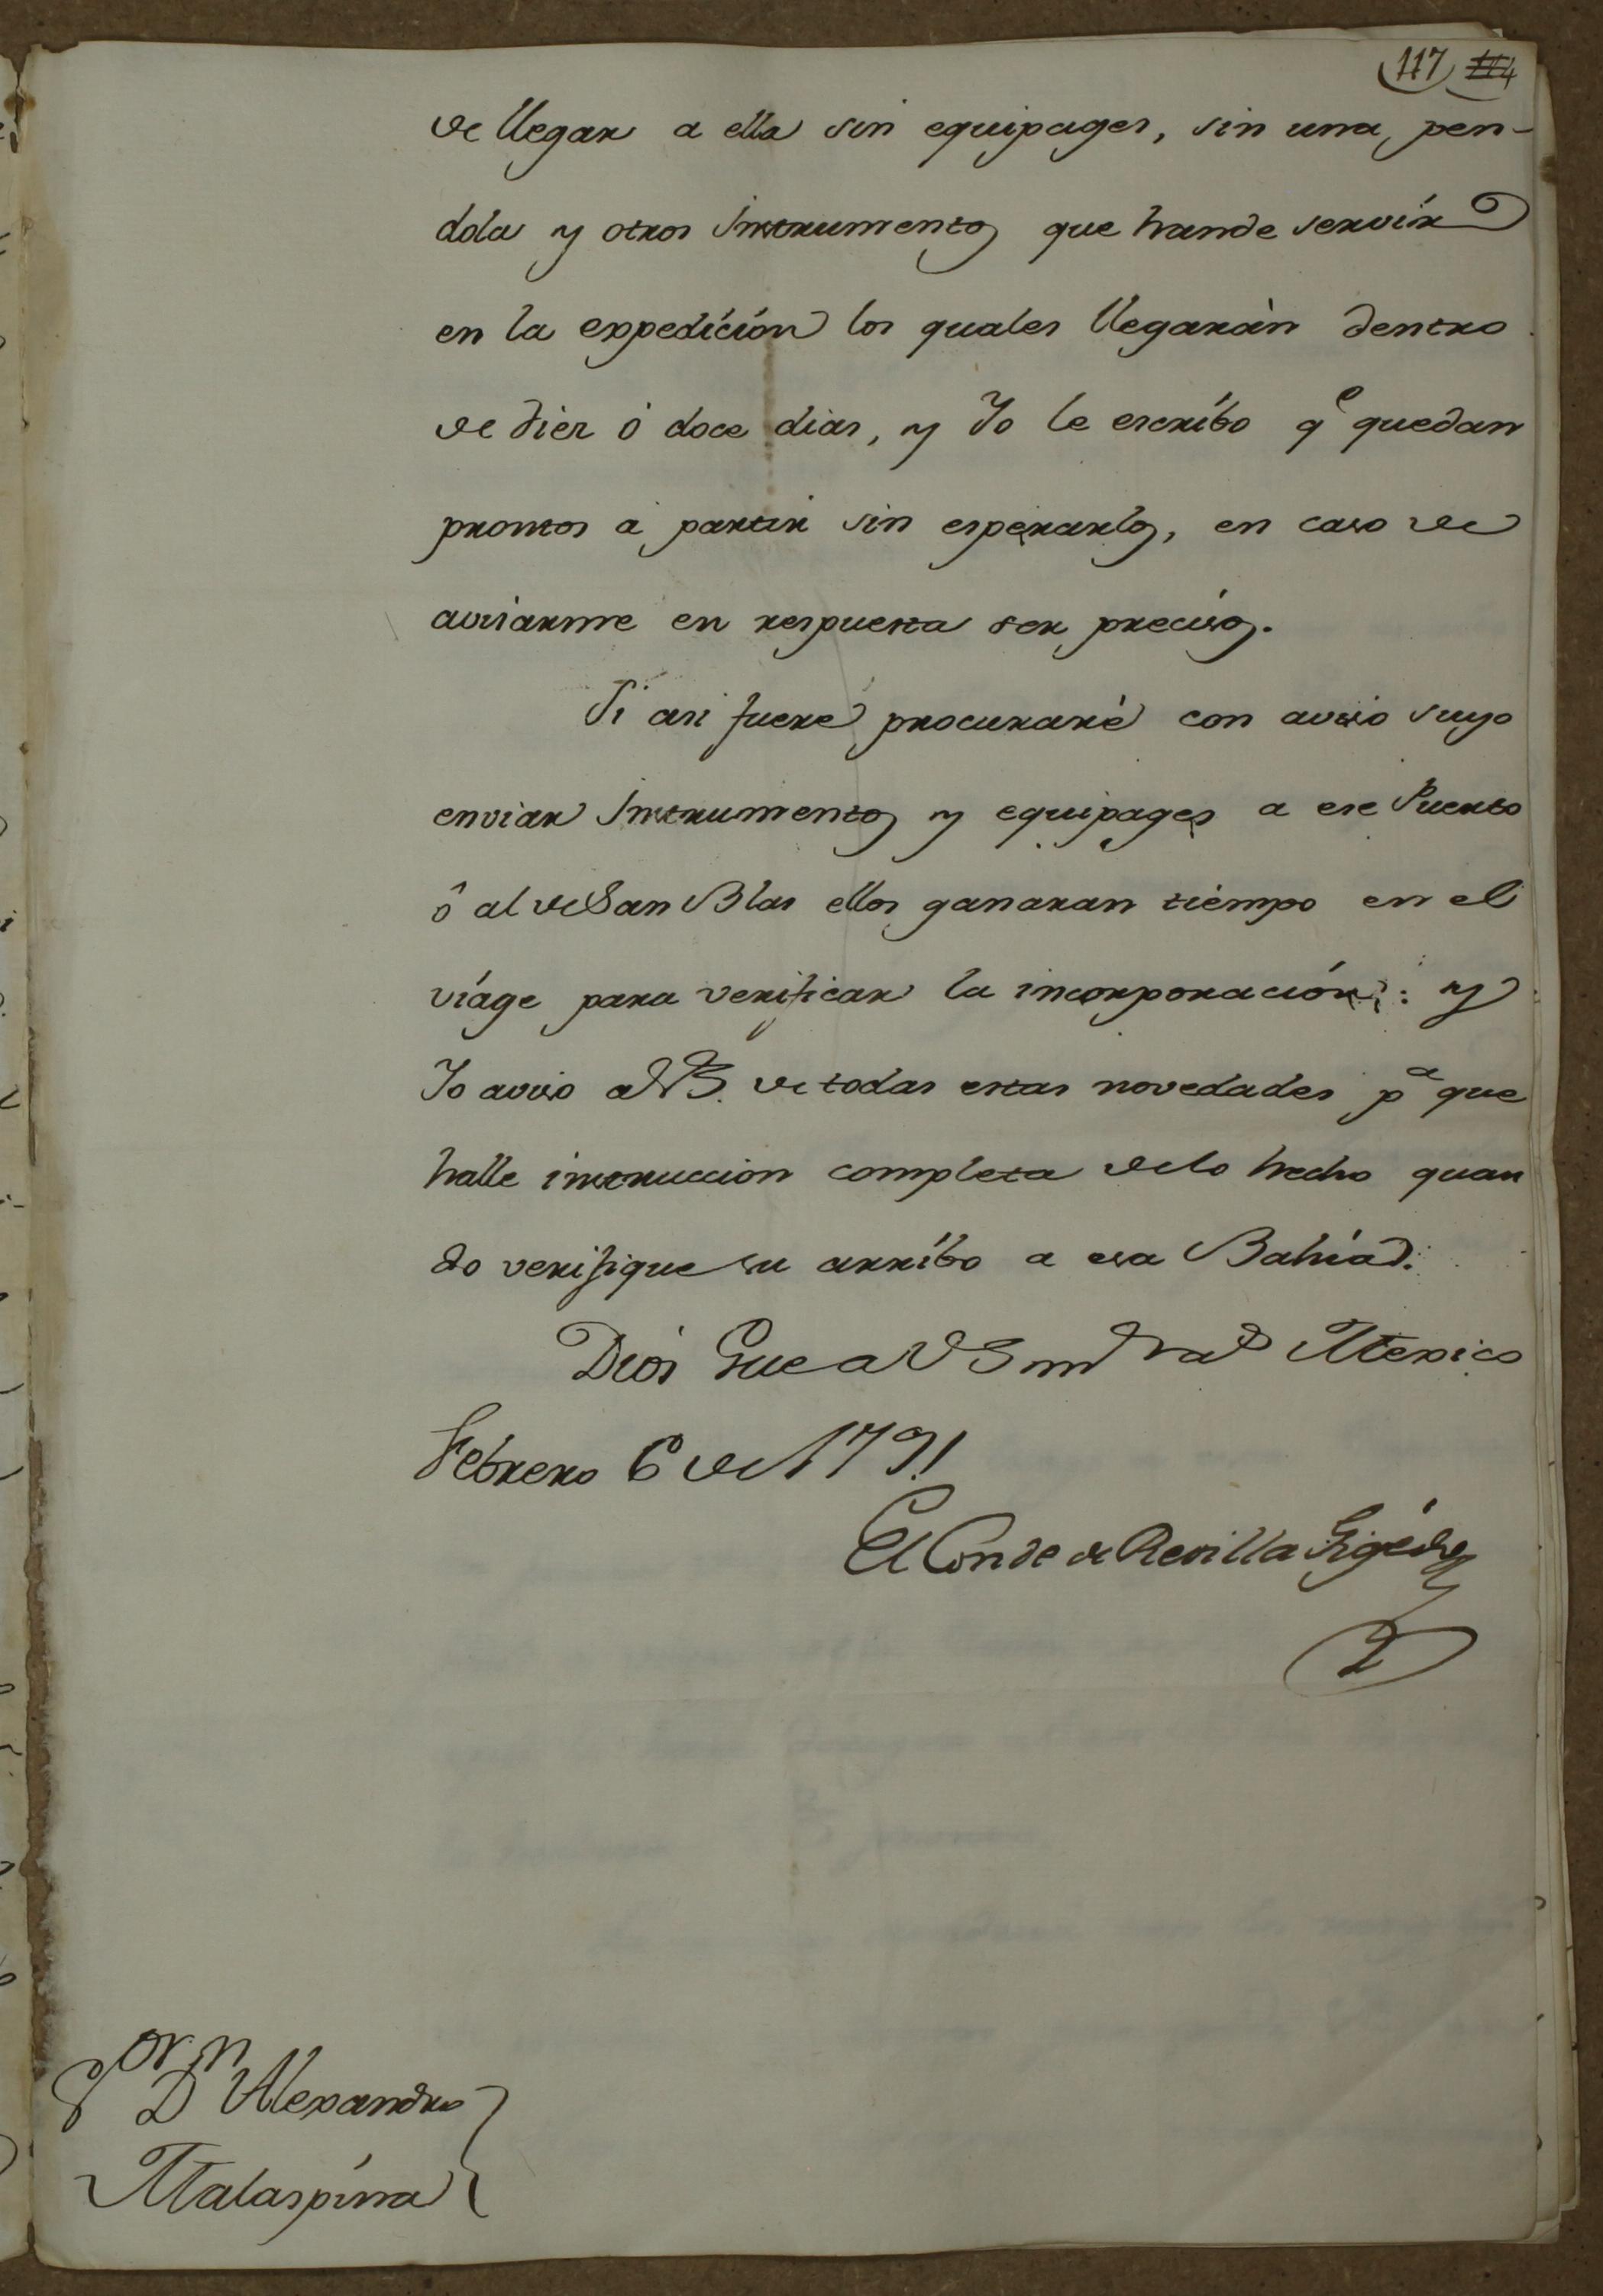 117 114
de llegar a ella sin equipages, sin una pen-
dola y otros Instrumentos que hande servir
en la expedición los quales llegaràn dentro
de diez ó doce dias, y Yo le escribo qe quedan
prontos a partir sin esperarlos, en caso de
avisarme en respuesta ser precisos.
Si asi fuere procuraré con aviso suyo
enviar Instrumentos y equipages a ese Puerto
ô al de San Blas ellos ganaran tiempo en el
viage para verificar la incorporación: y
Yo aviso a VS. de todas estas novedades pa que
halle instruccion completa delo hecho quan
do verifique su arribo a esa Bahia.
Dios Gue a VS ms as Mexico
Febrero 6 de 1791
El Conde de Revilla Gigedo
Sor Dn Alexandro
Malaspina